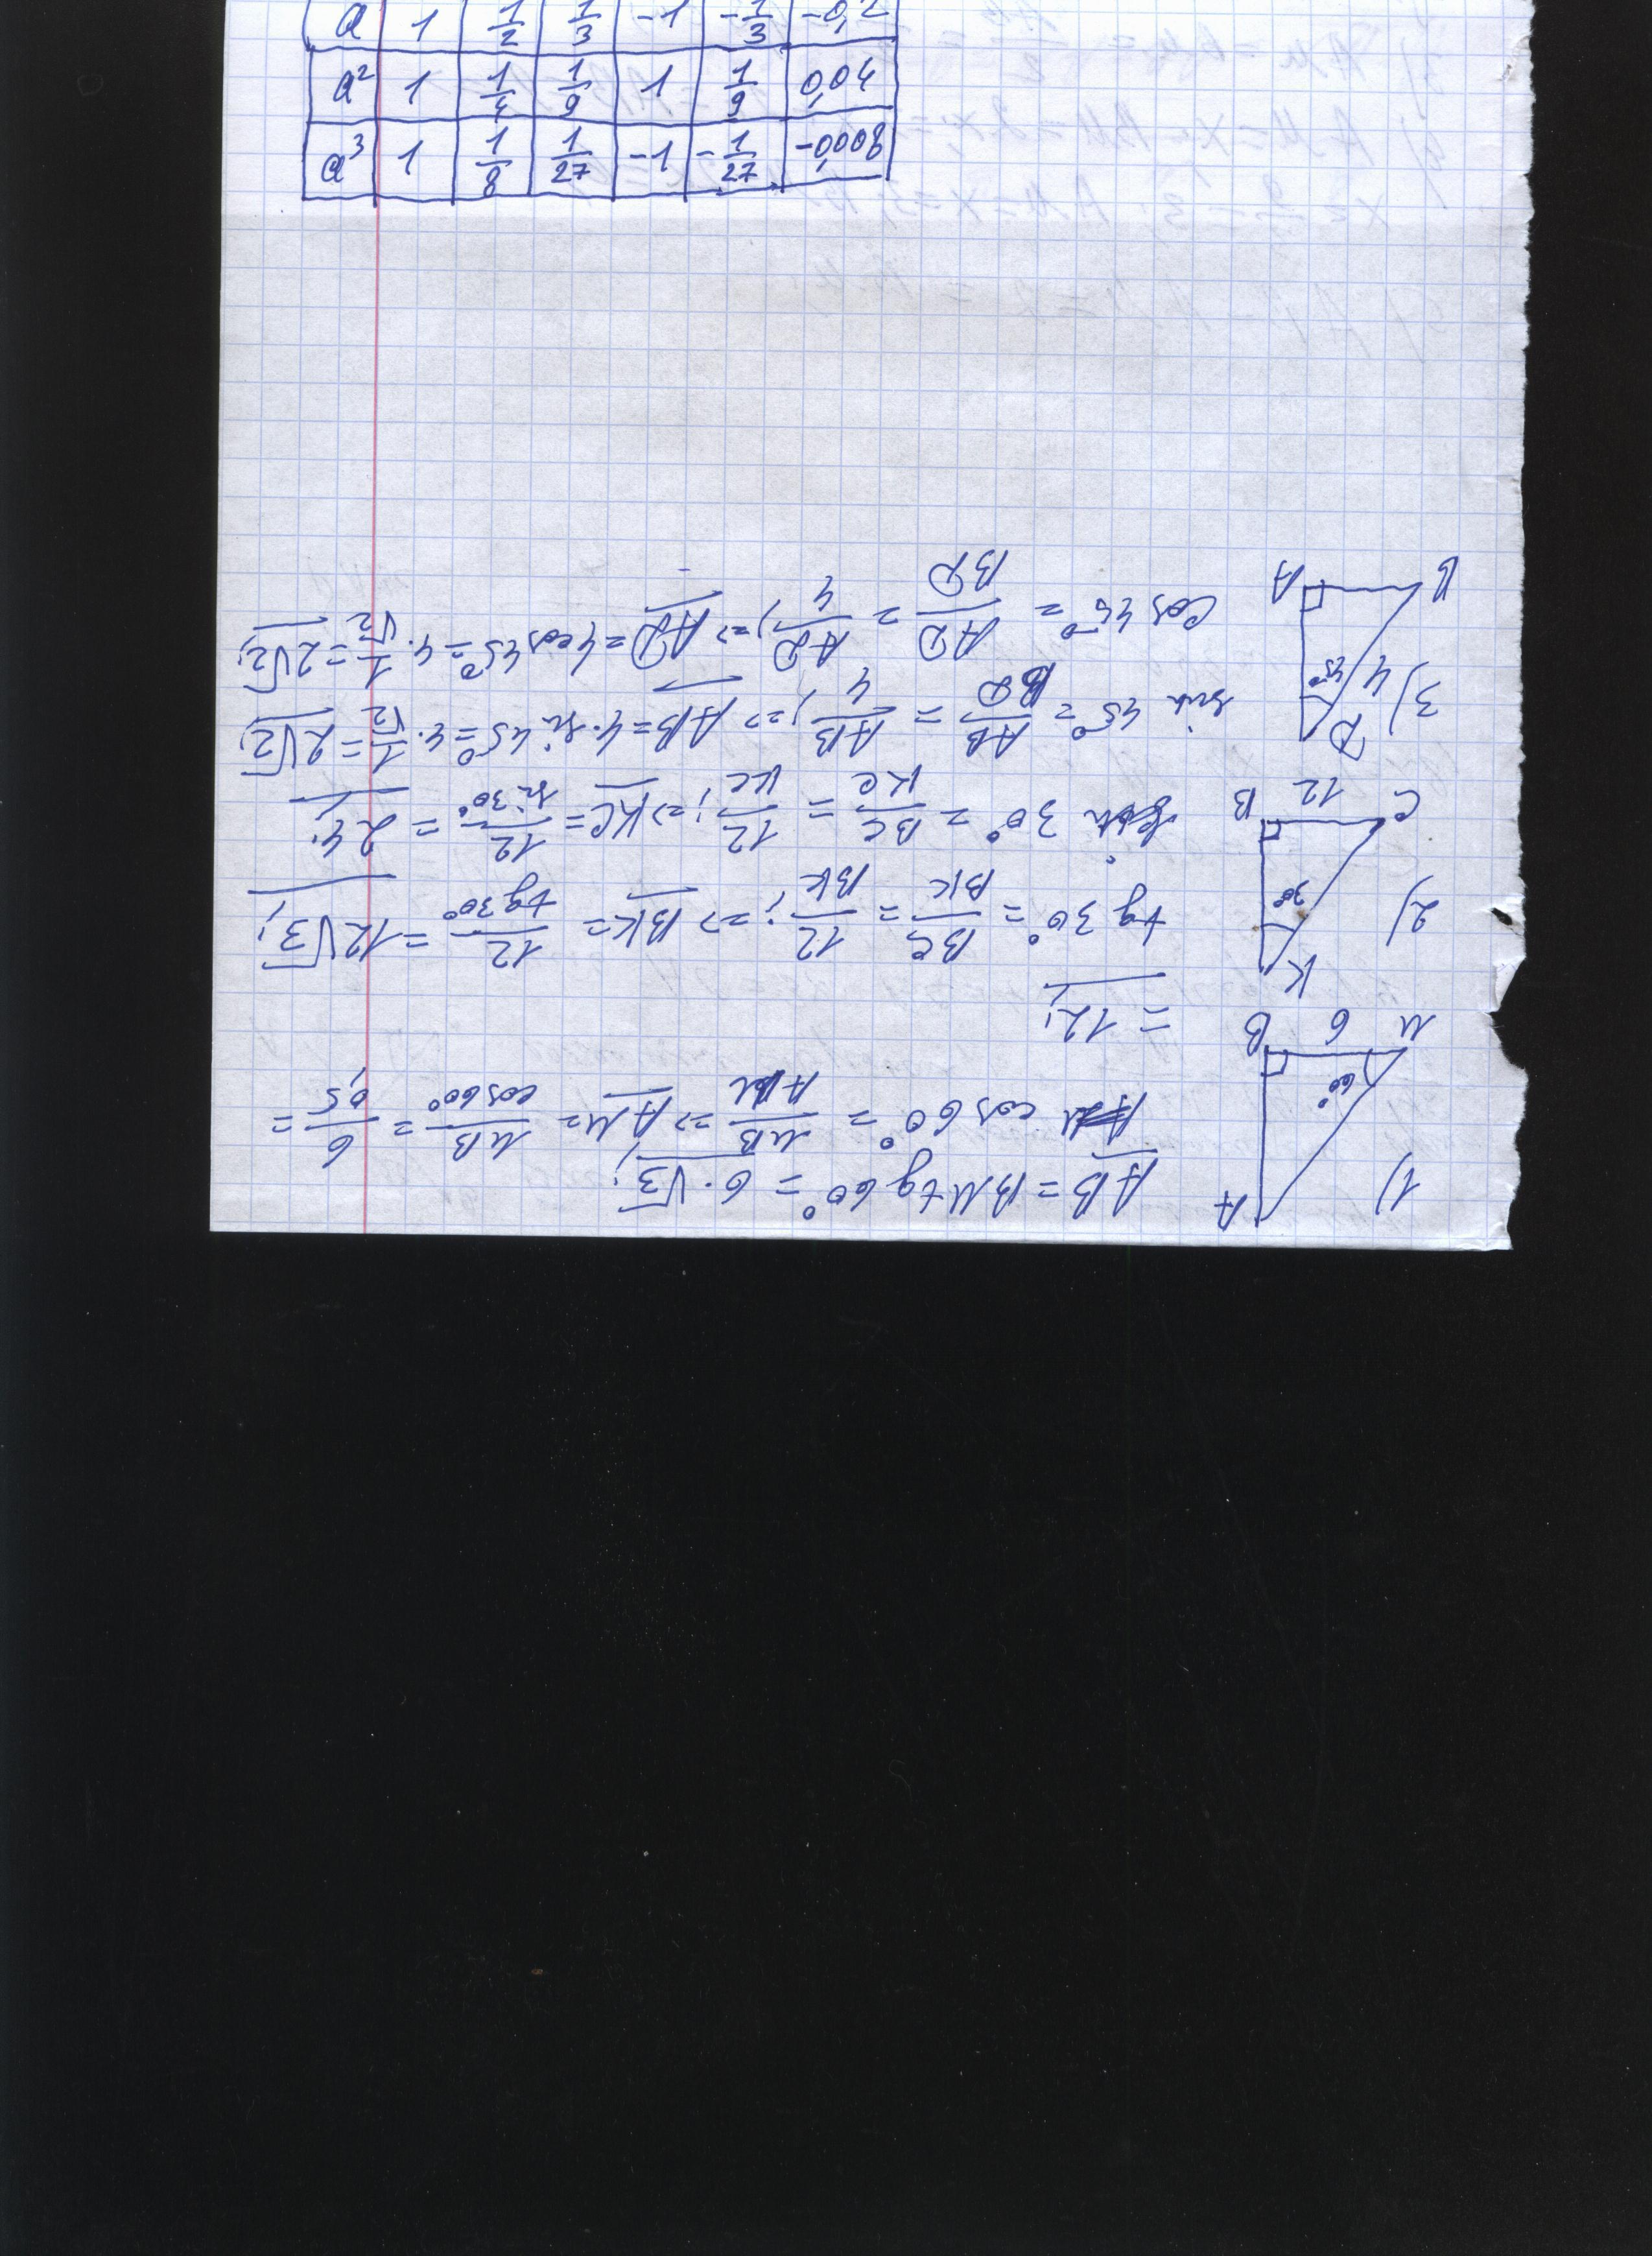 a 1 1/2 1/3 -1 -1/3 -0,2
a² 1 1/4 1/9 1 1/9 0,04
a³ 1 1/8 1/27 -1 -1/27 -0,008
1)
A
B 6 M
60°
AB = BM tg 60° = 6·√3;
cos 60° = MB/AM => AM = MB/cos60° = 6/0,5 =
= 12;
2)
K
30°
B 12 C
tg 30° = BC/BK = 12/BK; => BK = 12/tg30° = 12√3;
sin 30° = BC/KC = 12/KC; => KC = 12/si30° = 24.
3)
D
45°
4
A B
sin 45° = AB/BD = AB/4; => AB = 4·si 45° = 4·1/√2 = 2√2;
Cos 45° = AD/BD = AD/4; => AD = 4cos45° = 4·1/√2 = 2√2;